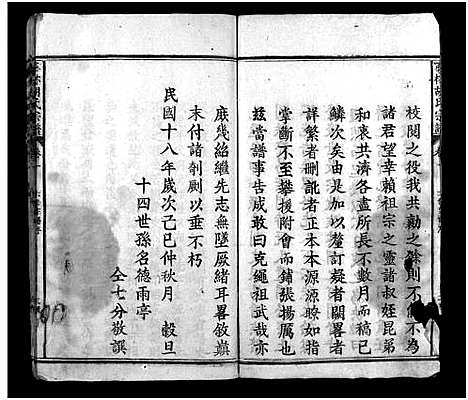 校閱之役我共勷之餘則不能不為
諸君望幸賴祖宗之靈諸叔姪昆弟
和衷共濟各盡所長不數月而稿已
鱗次矣由是加以釐訂疑者闕畧者
詳繁者刪訛者正本本源源瞭如指
掌斷不至攀援附會而鋪張揚厲也
茲當譜事告成敢曰克繩祖武哉亦
庶幾紹繼先志無墜厥緒耳畧敘巔
末付諸剞劂以垂不朽
民國十八年歲次己巳仲秋月 穀旦
十四世孫名德雨亭
仝七分敬譔
胡氏宗譜